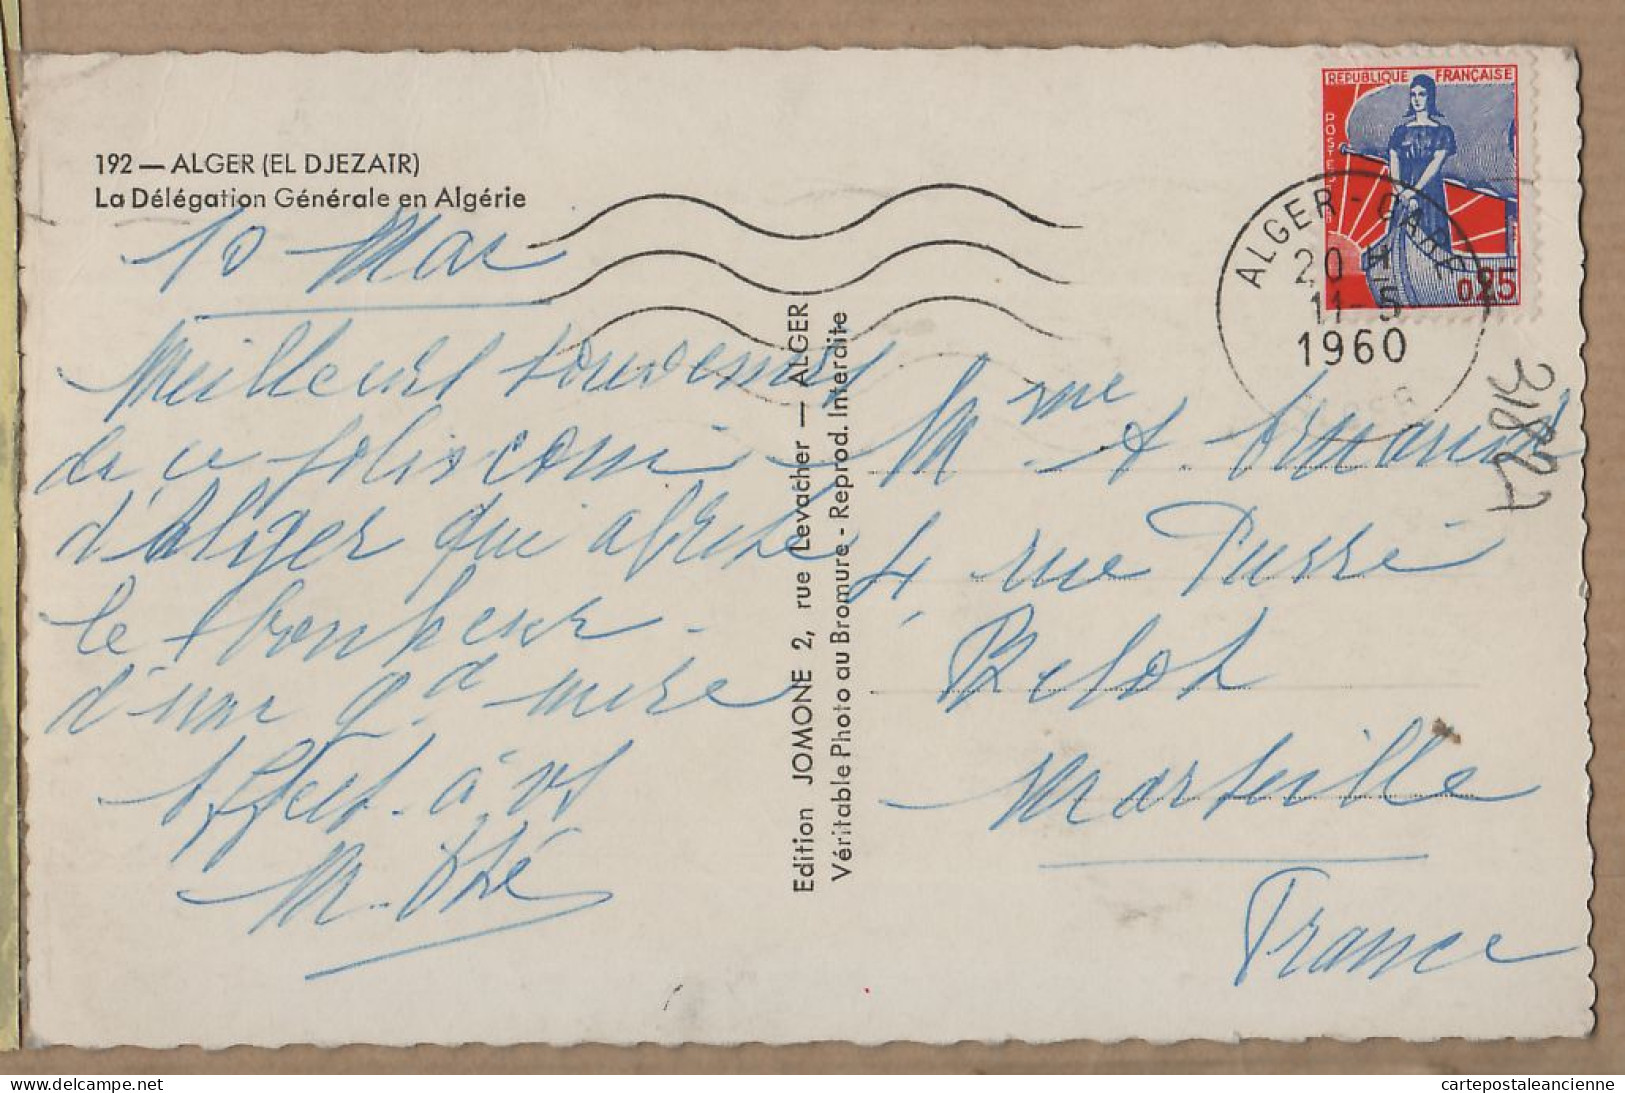 192 — ALGER (EL DJEZAIR)
La Délégation Générale en Algérie
10 Mai
Meilleurs souvenirs
de ce joli coin
d'Alger qui abrite
le bonheur
d'une gd mère
Affect. à vs
M.
Edition JOMONE 2, rue Levacher — ALGER
Véritable Photo au Bromure - Reprod. Interdite
REPUBLIQUE FRANÇAISE
POSTES
0,25
ALGER - GARE
20 H
11 - 5
1960
31822
Mme A.
4, rue
Belot
Marseille
France
delcampe.net
cartepostaleancienne